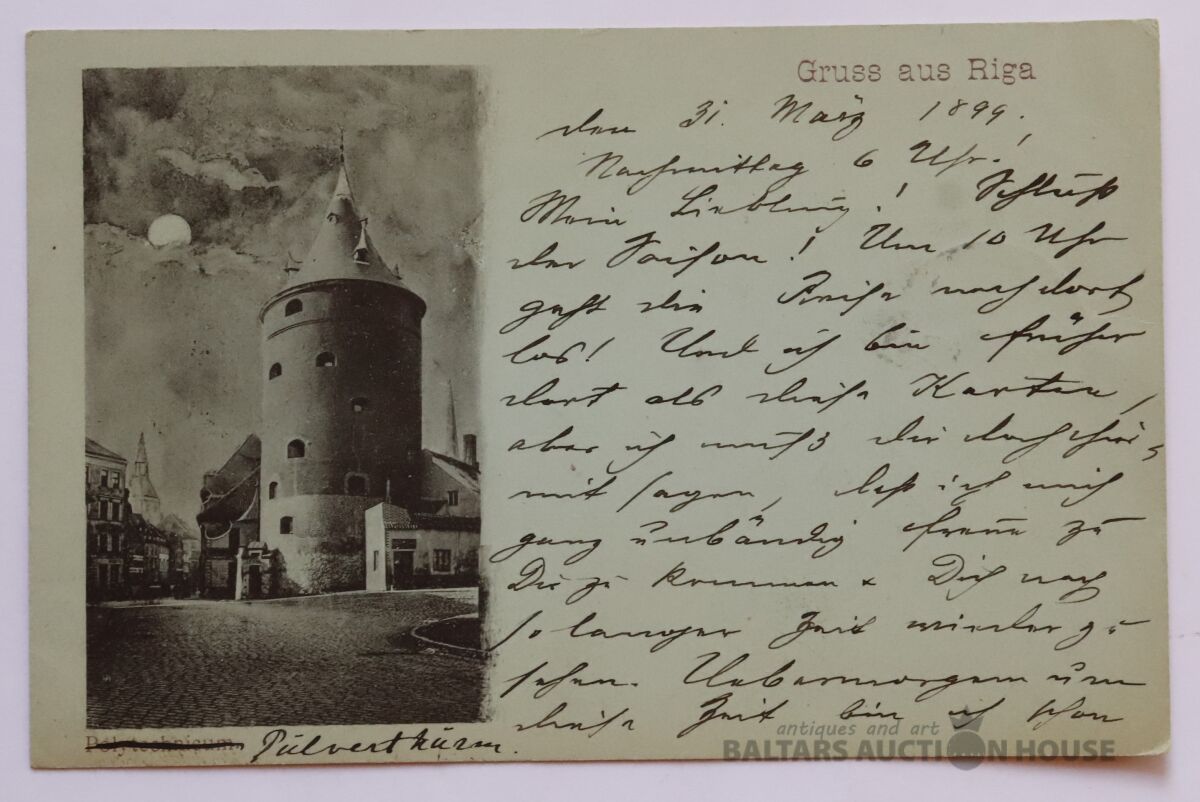 Gruss aus Riga
den 31. März 1899.
Nachmittag 6 Uhr.!
Mein Liebling! Schluß
der Saison! Um 10 Uhr
geht die Reise nach dort
los! Und ich bin früher
dort als diese Karten,
aber ich muß dir doch hier-
mit sagen, daß ich mich
ganz unbändig freue zu
Dir zu kommen & Dich nach
so langer Zeit wieder zu
sehen. Uebermorgen um
diese Zeit bin ich schon
Polytechnicum. Pulverthurm.
antiques and art
BALTARS AUCTION HOUSE